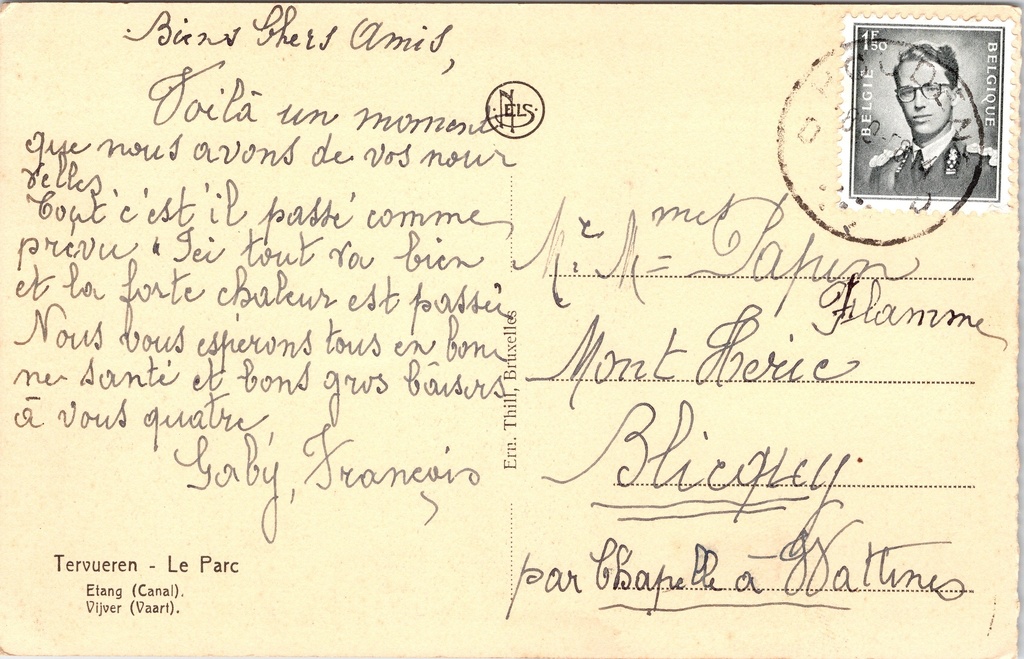 Biens Chers Amis,
Voilà un moment
que nous avons de vos nour
velles,
Tout c'est il passé comme
prévu " Ici tout va bien
et la forte chaleur est passée
Nous vous espérons tous en bon
ne santé et bons gros bâisers
à vous quatre,
Gaby, François
Tervueren - Le Parc
Etang (Canal).
Vijver (Vaart).
NELS
Ern. Thill, Bruxelles
1F50
BELGIE
BELGIQUE
Mr. Mme Papin
Flamme
Mont Heric
Blicquy
par Chapelle à Wattines